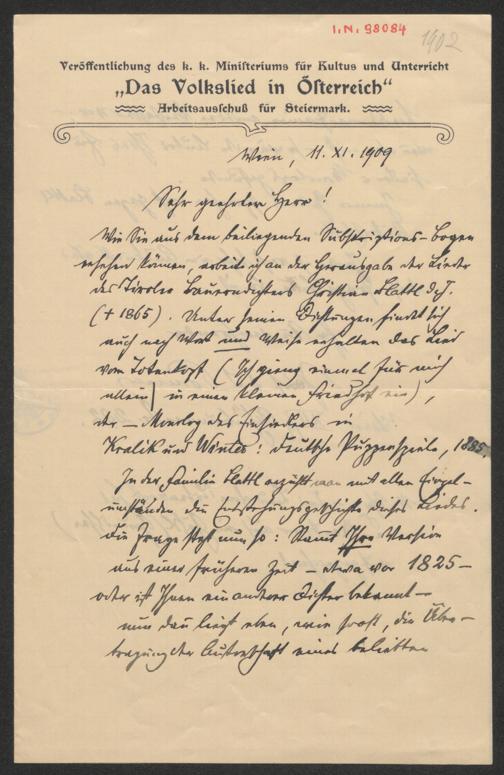 I.N. 98084
1902
Veröffentlichung des k. k. Ministeriums für Kultus und Unterricht
„Das Volkslied in Österreich“
Arbeitsausschuß für Steiermark.
Wien, 11. XI. 1909
Sehr geehrter Herr!
Wie Sie aus dem beiliegenden Subskriptions-Bogen
ersehen können, arbeite ich an der Herausgabe der Lieder
des Tiroler Bauerndichters Christian Blattl d. J.
(+ 1865). Unter seinen Dichtungen findet sich
auch nach Wort und Weise erhalten das Lied
vom Totenkopf (Ich gieng einmal für mich
allein) in einen kleinen Friedhof ein),
der – Monolog des Einsiedlers in
Kralik und Winter: Deutsche Puppenspiele, 1885.
In der Familie Blattl erzählt man mit allen Einzel-
umständen die Entstehungsgeschichte dieses Liedes.
Die Frage steht nun so: Stammt Ihre Version
aus einer früheren Zeit – etwa vor 1825 –
oder ist Ihnen ein anderer Dichter bekannt –
nun dann liegt eben, wie so oft, die Über-
tragung der Autorschaft eines beliebten